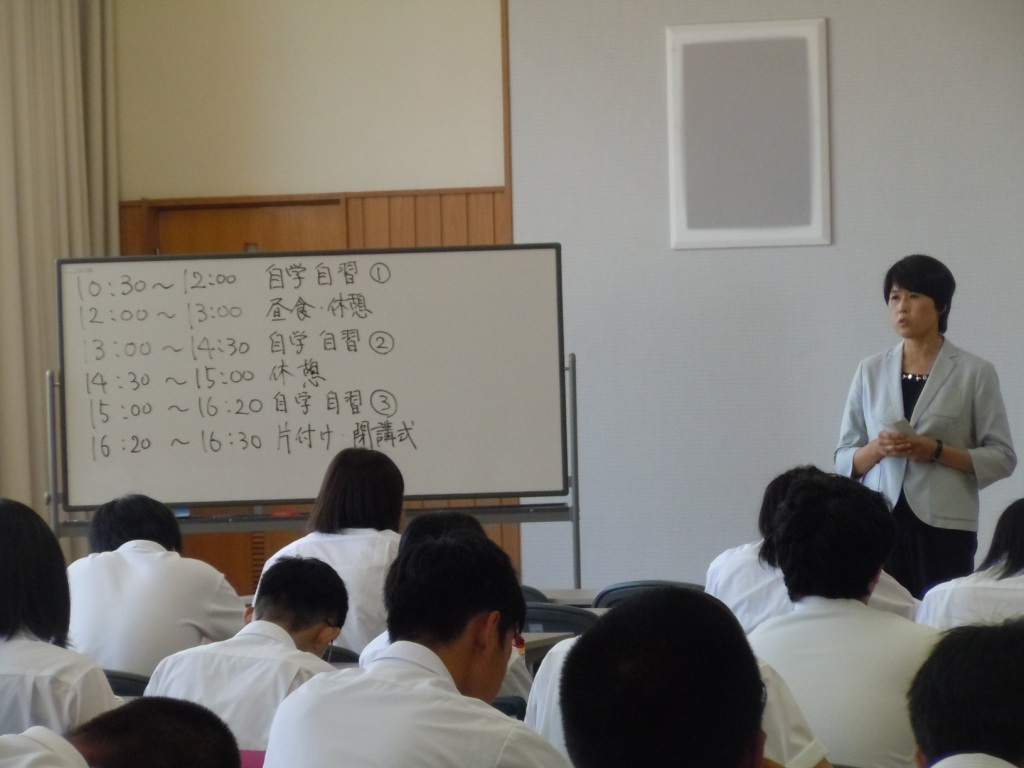 10:30～12:00 自学自習①
12:00～13:00 昼食・休憩
13:00～14:30 自学自習②
14:30～15:00 休憩
15:00～16:20 自学自習③
16:20～16:30 片付け・閉講式